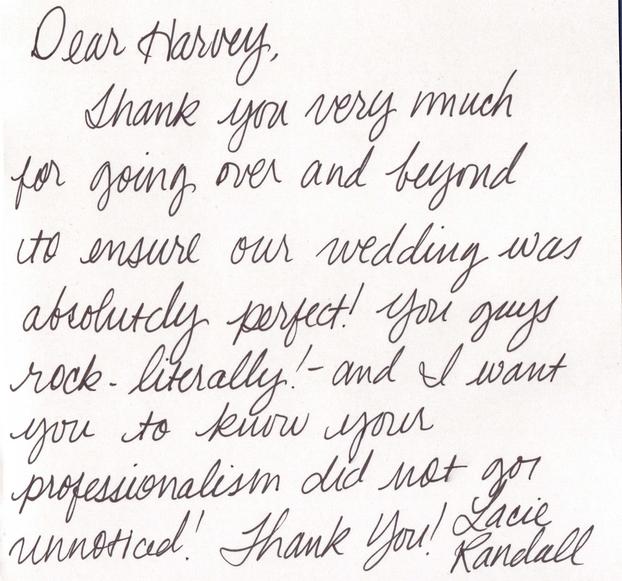 Dear Harvey,
Thank you very much
for going over and beyond
to ensure our wedding was
absolutely perfect! You guys
rock - literally! - and I want
you to know your
professionalism did not go
unnoticed! Thank You! Lacie
Randall